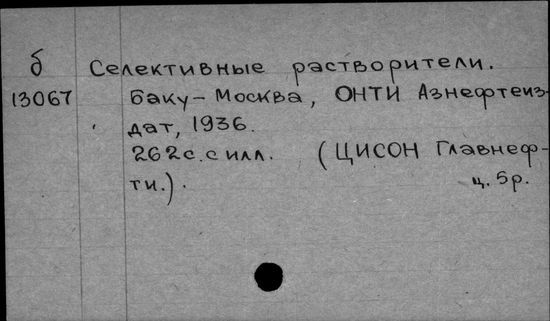 б Селективные растворители.
13067 Баку-Москва, ОНТИ Азнефтеиз-
дат, 1936.
262с. с илл. (ЦИСОН Главнеф-
ти.). ц. 5р.